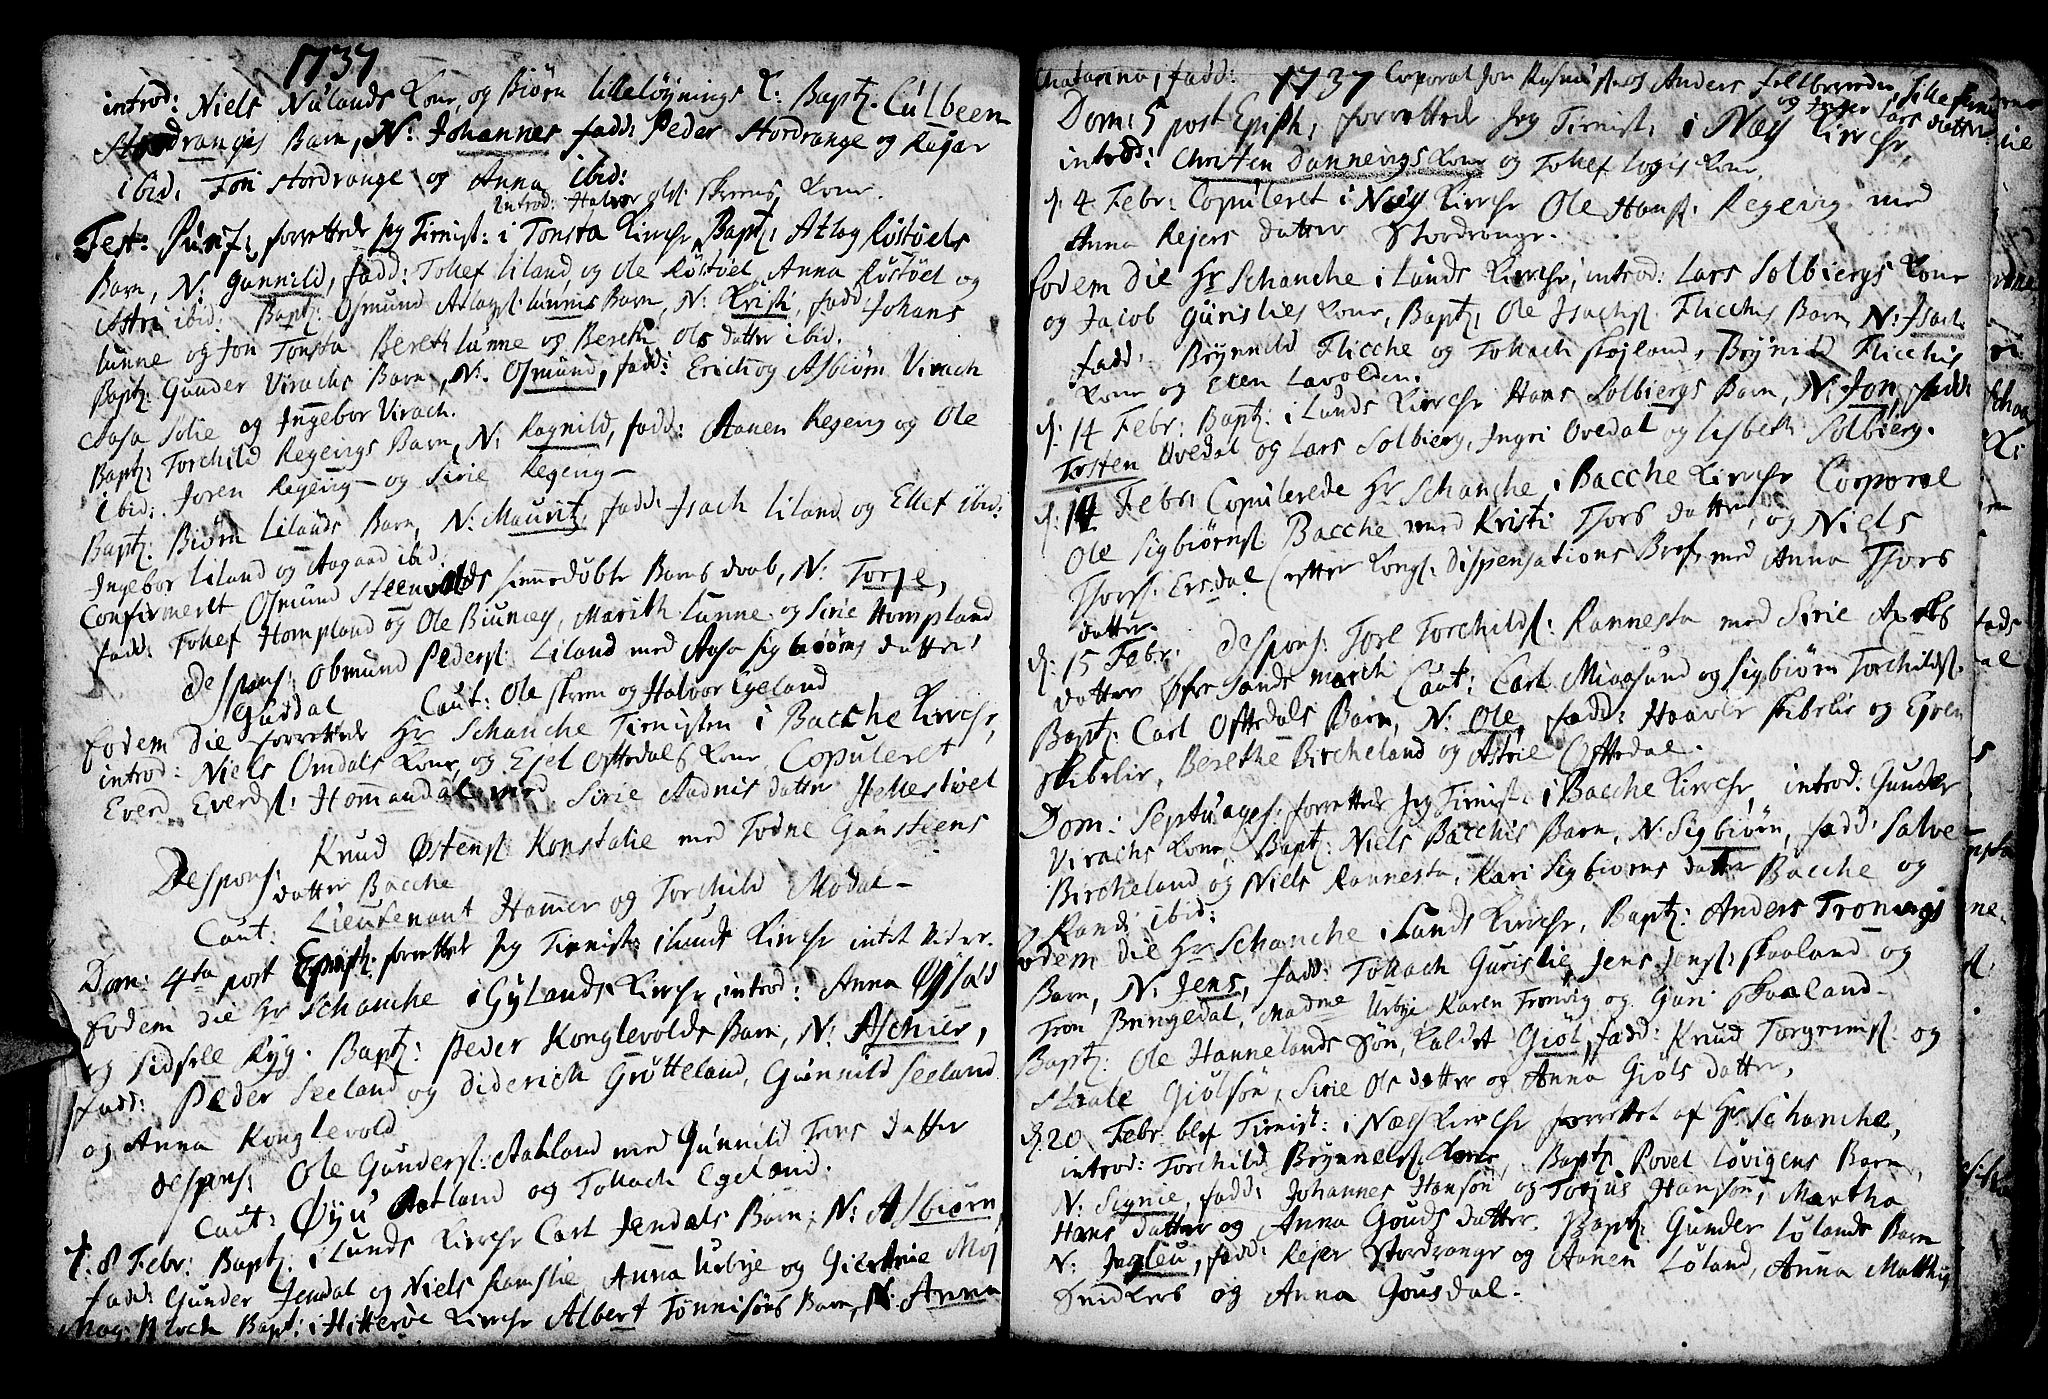 1737
introd: Niels Nulands Kone, og Biørn lilleløynings K: Baptz: Culbeen
Stordranges Barn, N: Johannes fadd: Peder Stordrange og Rejar
ibid: Tori Stordrange og Anna ibid:
introd: Halvor Olss: Skrems Kone.
Fest: Purif: forrettede Jeg Tienist: i Tonsta Kirche, Baptz: Atlag Røstøels
Barn, N: Gunnild, fadd: Tollef Liland, og Ole Røstøel, Anna Røstøel og
Astri ibid: Baptz: Osmund Atlags: Lunnis Barn, N: Kristi, fadd: Johans
Lunne og Jon Tonsta Bereth Lunne og Bereth Ols datter ibid.
Baptz: Gunder Virachs Barn, N: Osmund, fadd: Erich og Asbiørn Virach
Aasa Solie og Ingebor Virach.
Baptz: Torchild Regevigs Barn, N: Ragnild, fadd: Aanen Regevig og Ole
ibid: Joren Regevig og Sirie Regevig
Baptz: Biørn Lilands Barn, N: Mauritz, fadd: Isach Liland og Ellef ibid:
Ingebor Liland og Aagaad ibid.
Confirmeret Osmund Steenvolds hiemmedøbte Barns daab, N: Torje,
fadd: Tollef Hompland og Ole Biunæs, Marith Lunne og Sirie Hompland
Despons: Osmund Peders: Liland med Aasa Sigbiørns datter
Gusdal Caut: Ole Skrem og Halvor Egeland
Eodem die forrettede Hr Schanche Tienisten i Bacche Kirche,
introd: Niels Omdals Kone, og Ejel Oftedals Kone, Copuleret
Everd Everds: Hommandal med Sirie Aadnis datter Hellestvet
Despons: Knud Østens: Konstalie med Todne Gunsteens
datter Bacche
Caut: Lieutenant Hammer og Torchild Modal
Dom: 4ta post Epiph: forrettede Jeg Tienist: i Lunds Kirche intet videre.
Eodem die Hr Schanche i Gylands Kirche, introd: Anna
og Sidselle Ryg. Baptz: Peder Konglevolds Barn, N: Aschier,
fadd: Peder Seeland og Diderich Grøtteland, Gunnild Seeland
og Anna Konglevold
Despons: Ole Gunders: Aatland med Gunnild Tens datter
Caut: Øyu Aatland og Tollach Egeland.
d: 8 Febr: Baptz: i Lunds Kirche Carl Jendals Barn, N: Asbiørn,
fadd: Gunder Jendal og Niels Ramslie Anna Urbye og Giertrue Moj
Baptz: i Hitterøe Kirche Albert Tønnisøns Barn, N: Anna
Chatarina, fadd: 1737 Corporal Jon Rasmuss: og Anders
og Inger Lars datter
Dom: 5 post Epiph: forrettede Jeg Tienist: i Næs Kirche,
introd: Christen Dannevigs Kone og Tollef Logis Kone,
d: 4 Febr: Copuleret i Næs Kirche Ole Hans: Regevig med
Anna Rejers datter Stordrange.
Eodem die Hr Schanche i Lunds Kirche, introd: Lars Solbiergs Kone
og Jacob Gurislies Kone, Baptz: Ole Isachs: Flicchis Barn N: Isach
fadd: Brynild Flicche og Tollach Skojland, Brynild Flicchis
Kone og Elen Lavolden.
d: 14 Febr: Baptz: i Lunds Kirche Hans Solbiergs Barn, N: Jon, fadd:
Tosten Uvedal og Lars Solbierg, Ingri Ovedal og Lisbeth Solbierg.
d: 14 Febr: Copulerede Hr Schanche i Bacche Kirche Corporal
Ole Sigbiørns: Bacche med Kristi Tjors datter, og Niels
Tjors: Ersdal (efter Kongl: dispensations Bref) med Anna Tjors
datter.
d: 15 Febr: despons: Tore Torchilds: Rannesta med Sirie
datter Øfre Sandsmarch Caut: Carl Miaasund og Sigbiørn Torchilds:
Baptz: Carl Oftedals Barn, N: Ole, fadd: Haaver Skibelie og Ejven
Skibelie, Berethe Bircheland og Astrie Oftedal.
Dom: Septuages: forrettede Jeg Tienist: i Bacche Kirche, introd: Gunder
Virachs Kone, Baptz: Niels Bacchis Barn, N: Sigbiørn, fadd: Salve
Bircheland og Niels Rannesta, Kari Sigbiørns datter Bacche og
Randi ibid:
Eodem die Hr Schanche i Lunds Kirche, Baptz: Anders Tronvigs
Barn, N: Jens, fadd: Tollach Gurislie, Jens Jens: Skaaland og
Tron Bringedal, Madme Urbye Karen Tronvig og Guri Skaaland
Baptz: Ole Hannelands Søn, kaldet Giøl, fadd: Knud Torgrims: og
Staale Giølsøn, Sirie Ols datter og Anna Giøls datter,
d: 20 Febr: blef Tienist: i Næs Kirche forrettet af Hr Schanche,
introd: Torchild Brynnels: Kone, Baptz: Povel Løvigens Barn,
N: Signie, fadd: Johannes Hansøn og Torjus Hansøn, Martha
Hans datter og Anna Gouds datter. Baptz: Gunder Lølands Barn
N: Jngleu, fadd: Rejer Stordrange og Aanen Løland, Anna Matthis
Snidkers og Anna Gousdal.